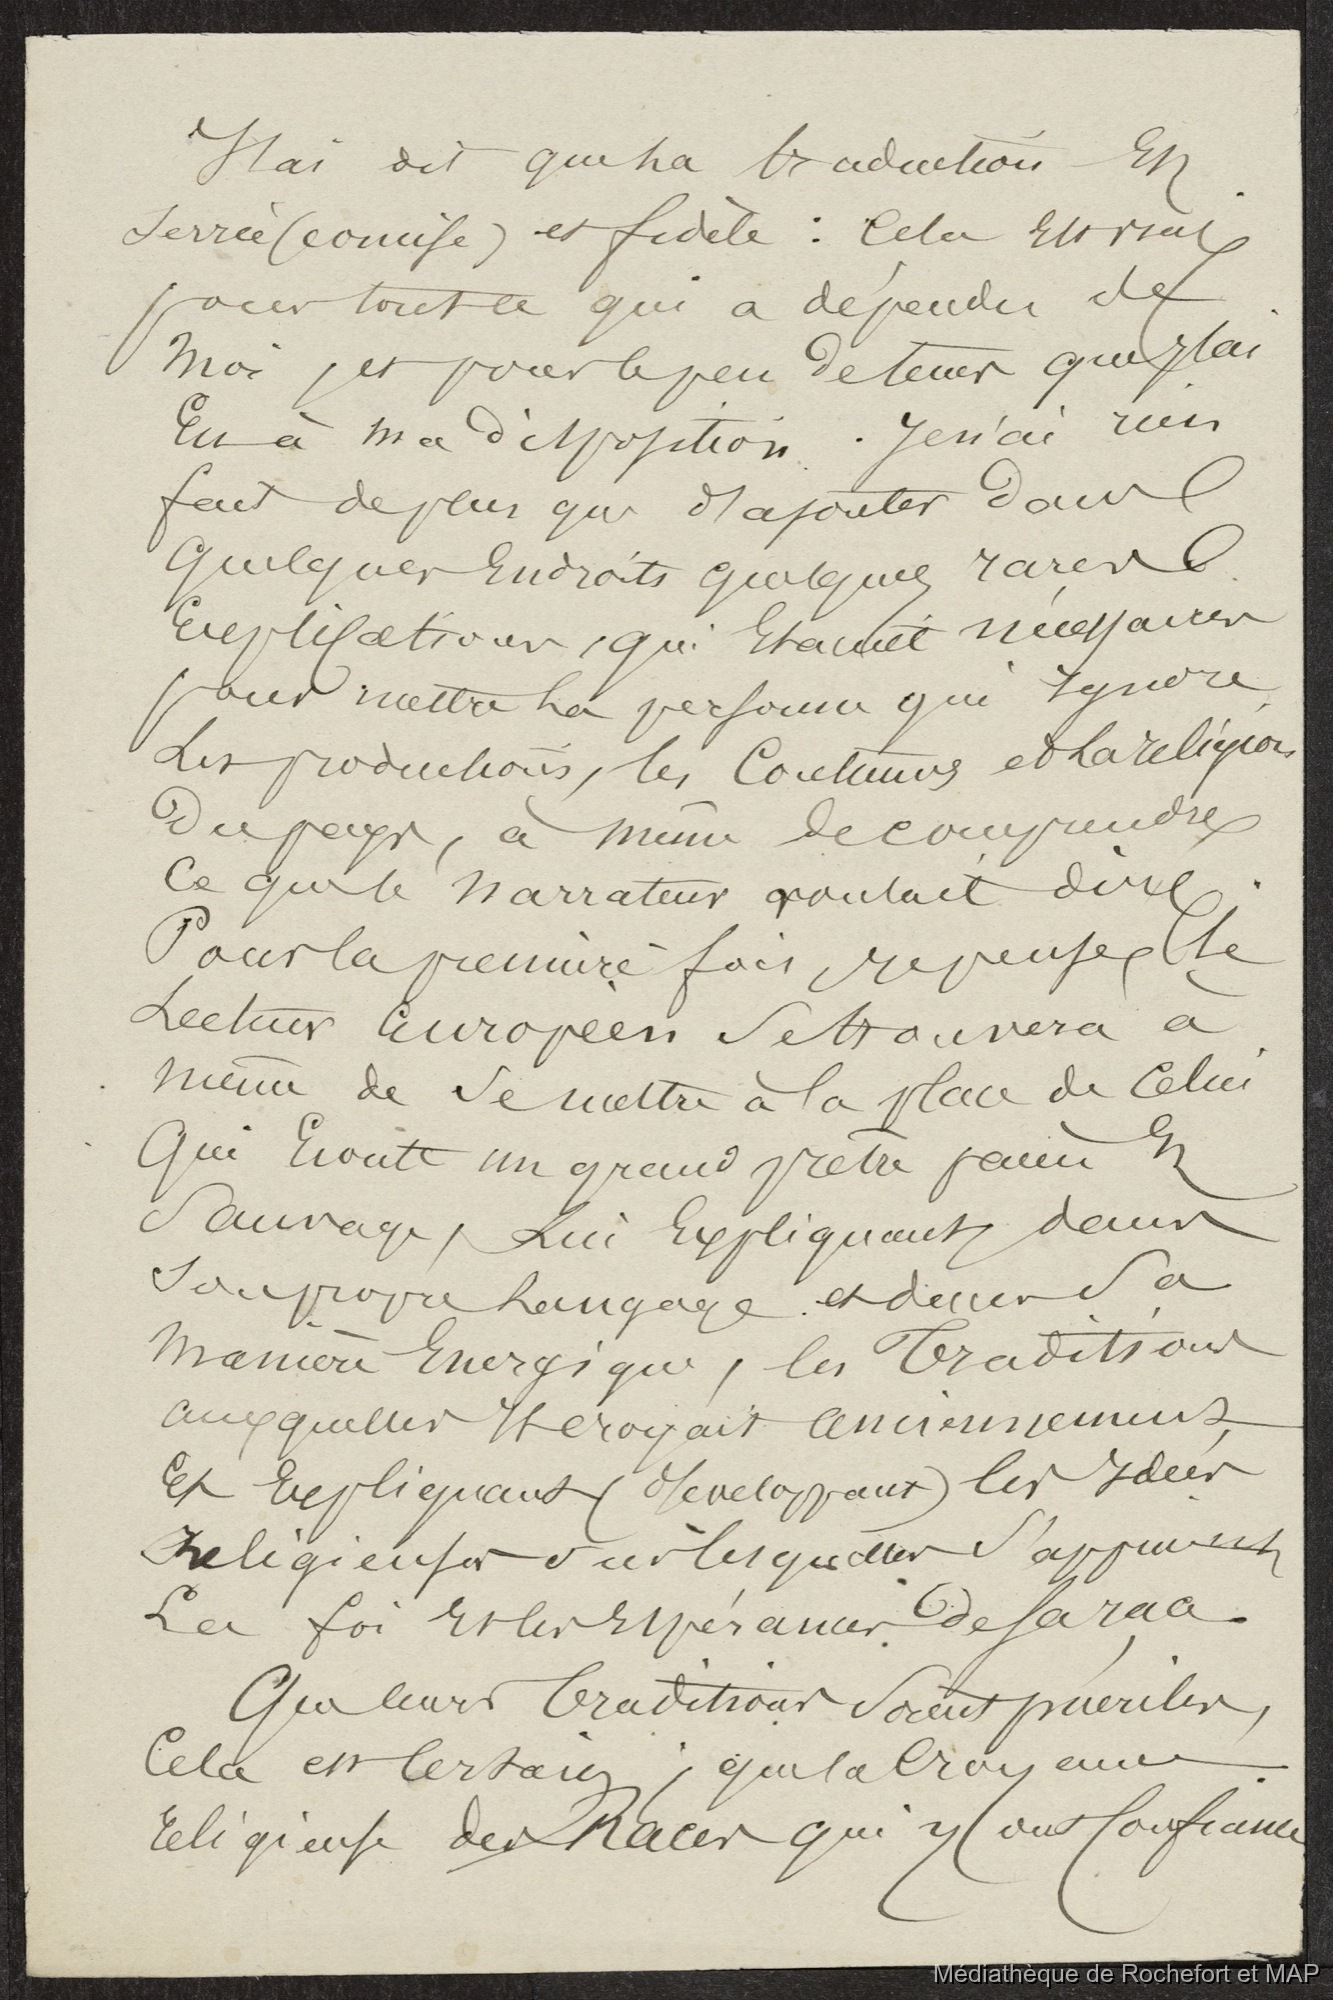 J'ai dit que la traduction est
serrée (concise) et fidèle : cela est vrai
pour tout ce qui a dépendu de
moi, et pour le peu de tems que j'ai
eu à ma disposition. Je n'ai rien
fait de plus que d'ajouter dans
quelques endroits quelques rares
explications, qui étaient nécessaires
pour mettre la personne qui ignore
les productions, les coutumes et la religion
du pays, à même de comprendre
ce que le narrateur voulait dire.
Pour la première fois, je pense, le
lecteur européen se trouvera à
même de se mettre à la place de celui
qui écoute un grand prêtre païen et
sauvage, lui expliquant dans
son propre langage et dans sa
manière énergique, les traditions
auxquelles il croyait anciennement
et expliquant (developpant) les idées
religieuses sur lesquelles s'appuient
la foi et les espérances de sa race.
Que leurs traditions soient puériles,
cela est certain ; que la croyance
religieuse des Races qui y ont confiance
Médiathèque de Rochefort et MAP